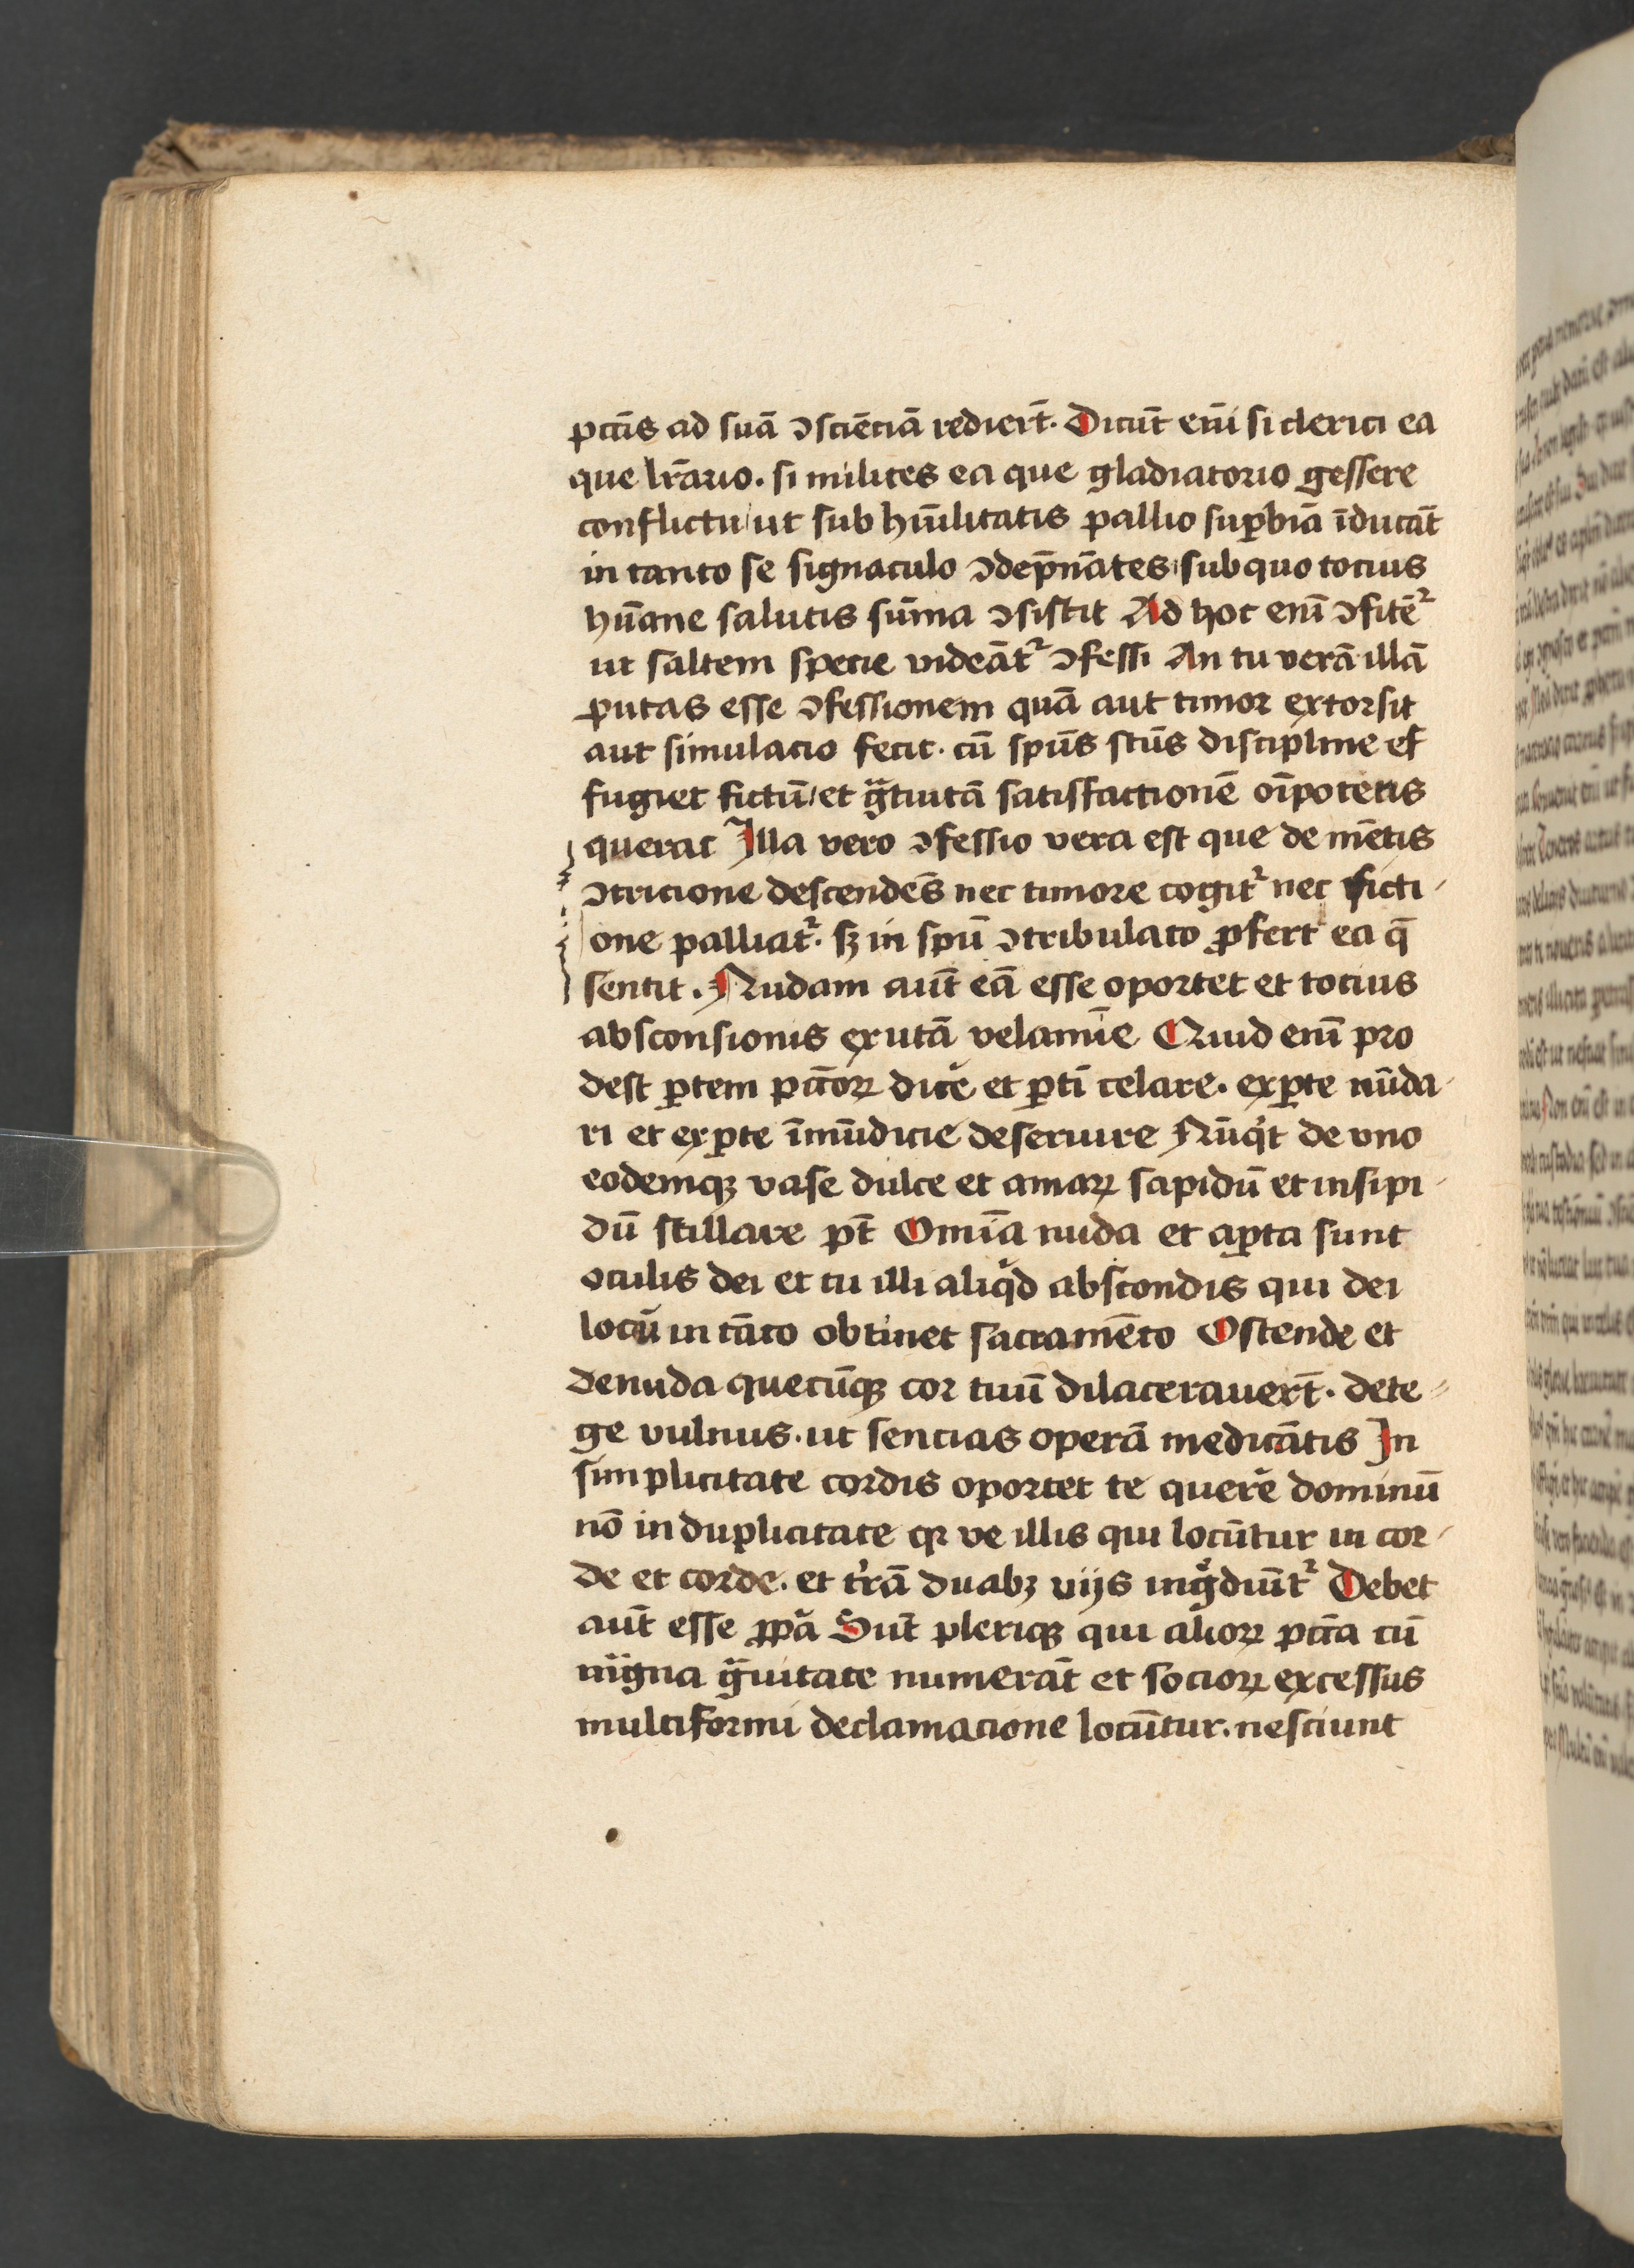 pctīs ad suā ↄsciēciā rediert̄. Dicūt em̄ si clerici ea
que lr̄ario. si milites ea que gladiatorio gessere
conflictu ut sub hūilitatis pallio suꝑbiā īducāt
in tanto se signaculo ↄdep̄nātes sub quo tocius
hūane salutis sūma ↄsistit Ad hoc em̄ ↄfitēt᷑
ut saltem specie videāt᷑ ↄfessi An tu verā illā
putas esse ↄfessionem quā aut timor extorsit
aut simulacio fecit. cū spūs scūs discipline ef
fugiet fictū et gͣtuitā satisfactionē oīpotētis
querat Illa vero ↄfessio vera est que de mētis
ↄtricione descendēs nec timore cogit᷑ nec ficti-
one palliat᷑. sꝫ in spū ↄtribulato ꝓfert ea q̄
sentit. Nudam aūt eā esse oportet et tocius
absconsionis exutā velamīe Quid em̄ pro
dest ꝑtem pctōꝝ dice᷑ et ꝑtī celare. exꝑte mūda-
ri et exꝑte īmūdicie deseruire Nūqͥt de vno
eodemqꝫ vase dulce et amaꝝ sapidū et insipi-
dū stillare pt̄ Omīa nuda et aꝑta sunt
oculis dei et tu illi aliqͥd abscondis qui dei
locū in tāto obtinet sacramēto Ostende et
denuda quecūqꝫ cor tuū dilaceravert̄. dete-
ge vulnus. ut sencias operā medicātis In
simplicitate cordis oportet te quere᷑ dominū
nō in duplicitate qꝛ ve illis qui locūtur in cor-
de et corde. et tr̄ā duabꝫ vijs ingͦdiūt᷑ Debet
aūt esse ꝓpͥa Sūt pleriqꝫ qui alioꝝ pctā cū
mͣgna gͣuitate numerāt et socioꝝ excessus
multiformi declamacione locūtur. nesciunt